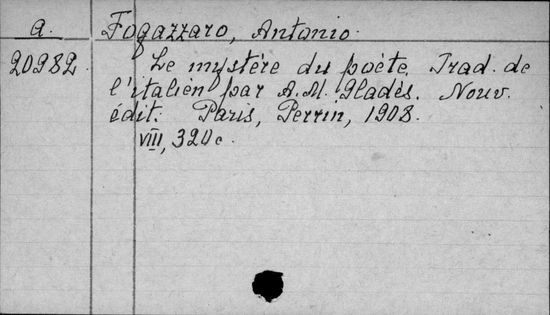 a. Fogazzaro, Antonio.
20982. Le mystère du poète. Trad. de
l'italien par A.M. Gladès. Nouv.
édit. Paris, Perrin, 1908.
VIII, 320 c.